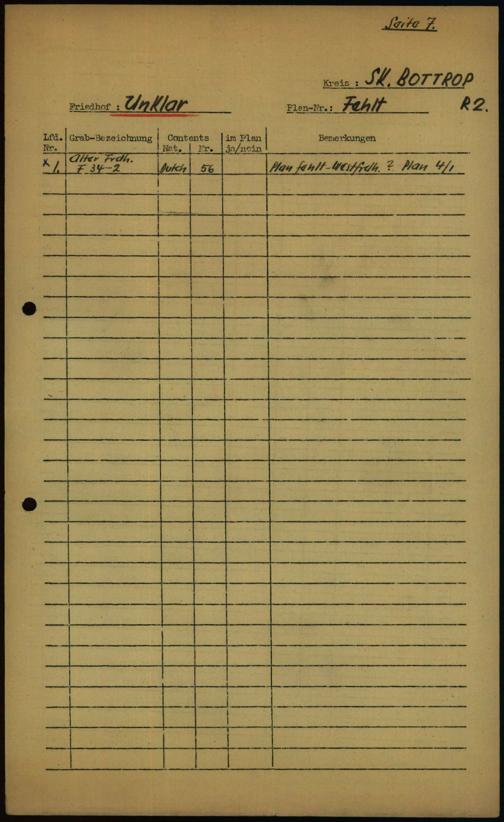 Seite 7.
Kreis : SK. BOTTROP
Friedhof : Unklar Plan-Nr.: Fehlt R2.
Lfd. Grab-Bezeichnung Contents im Plan Bemerkungen
Nr. Nat. Nr. ja/nein
x 1. Alter Frdh.
F 34-2 Dutch 56 Plan fehlt-Westfrdh. ? Plan 4/1